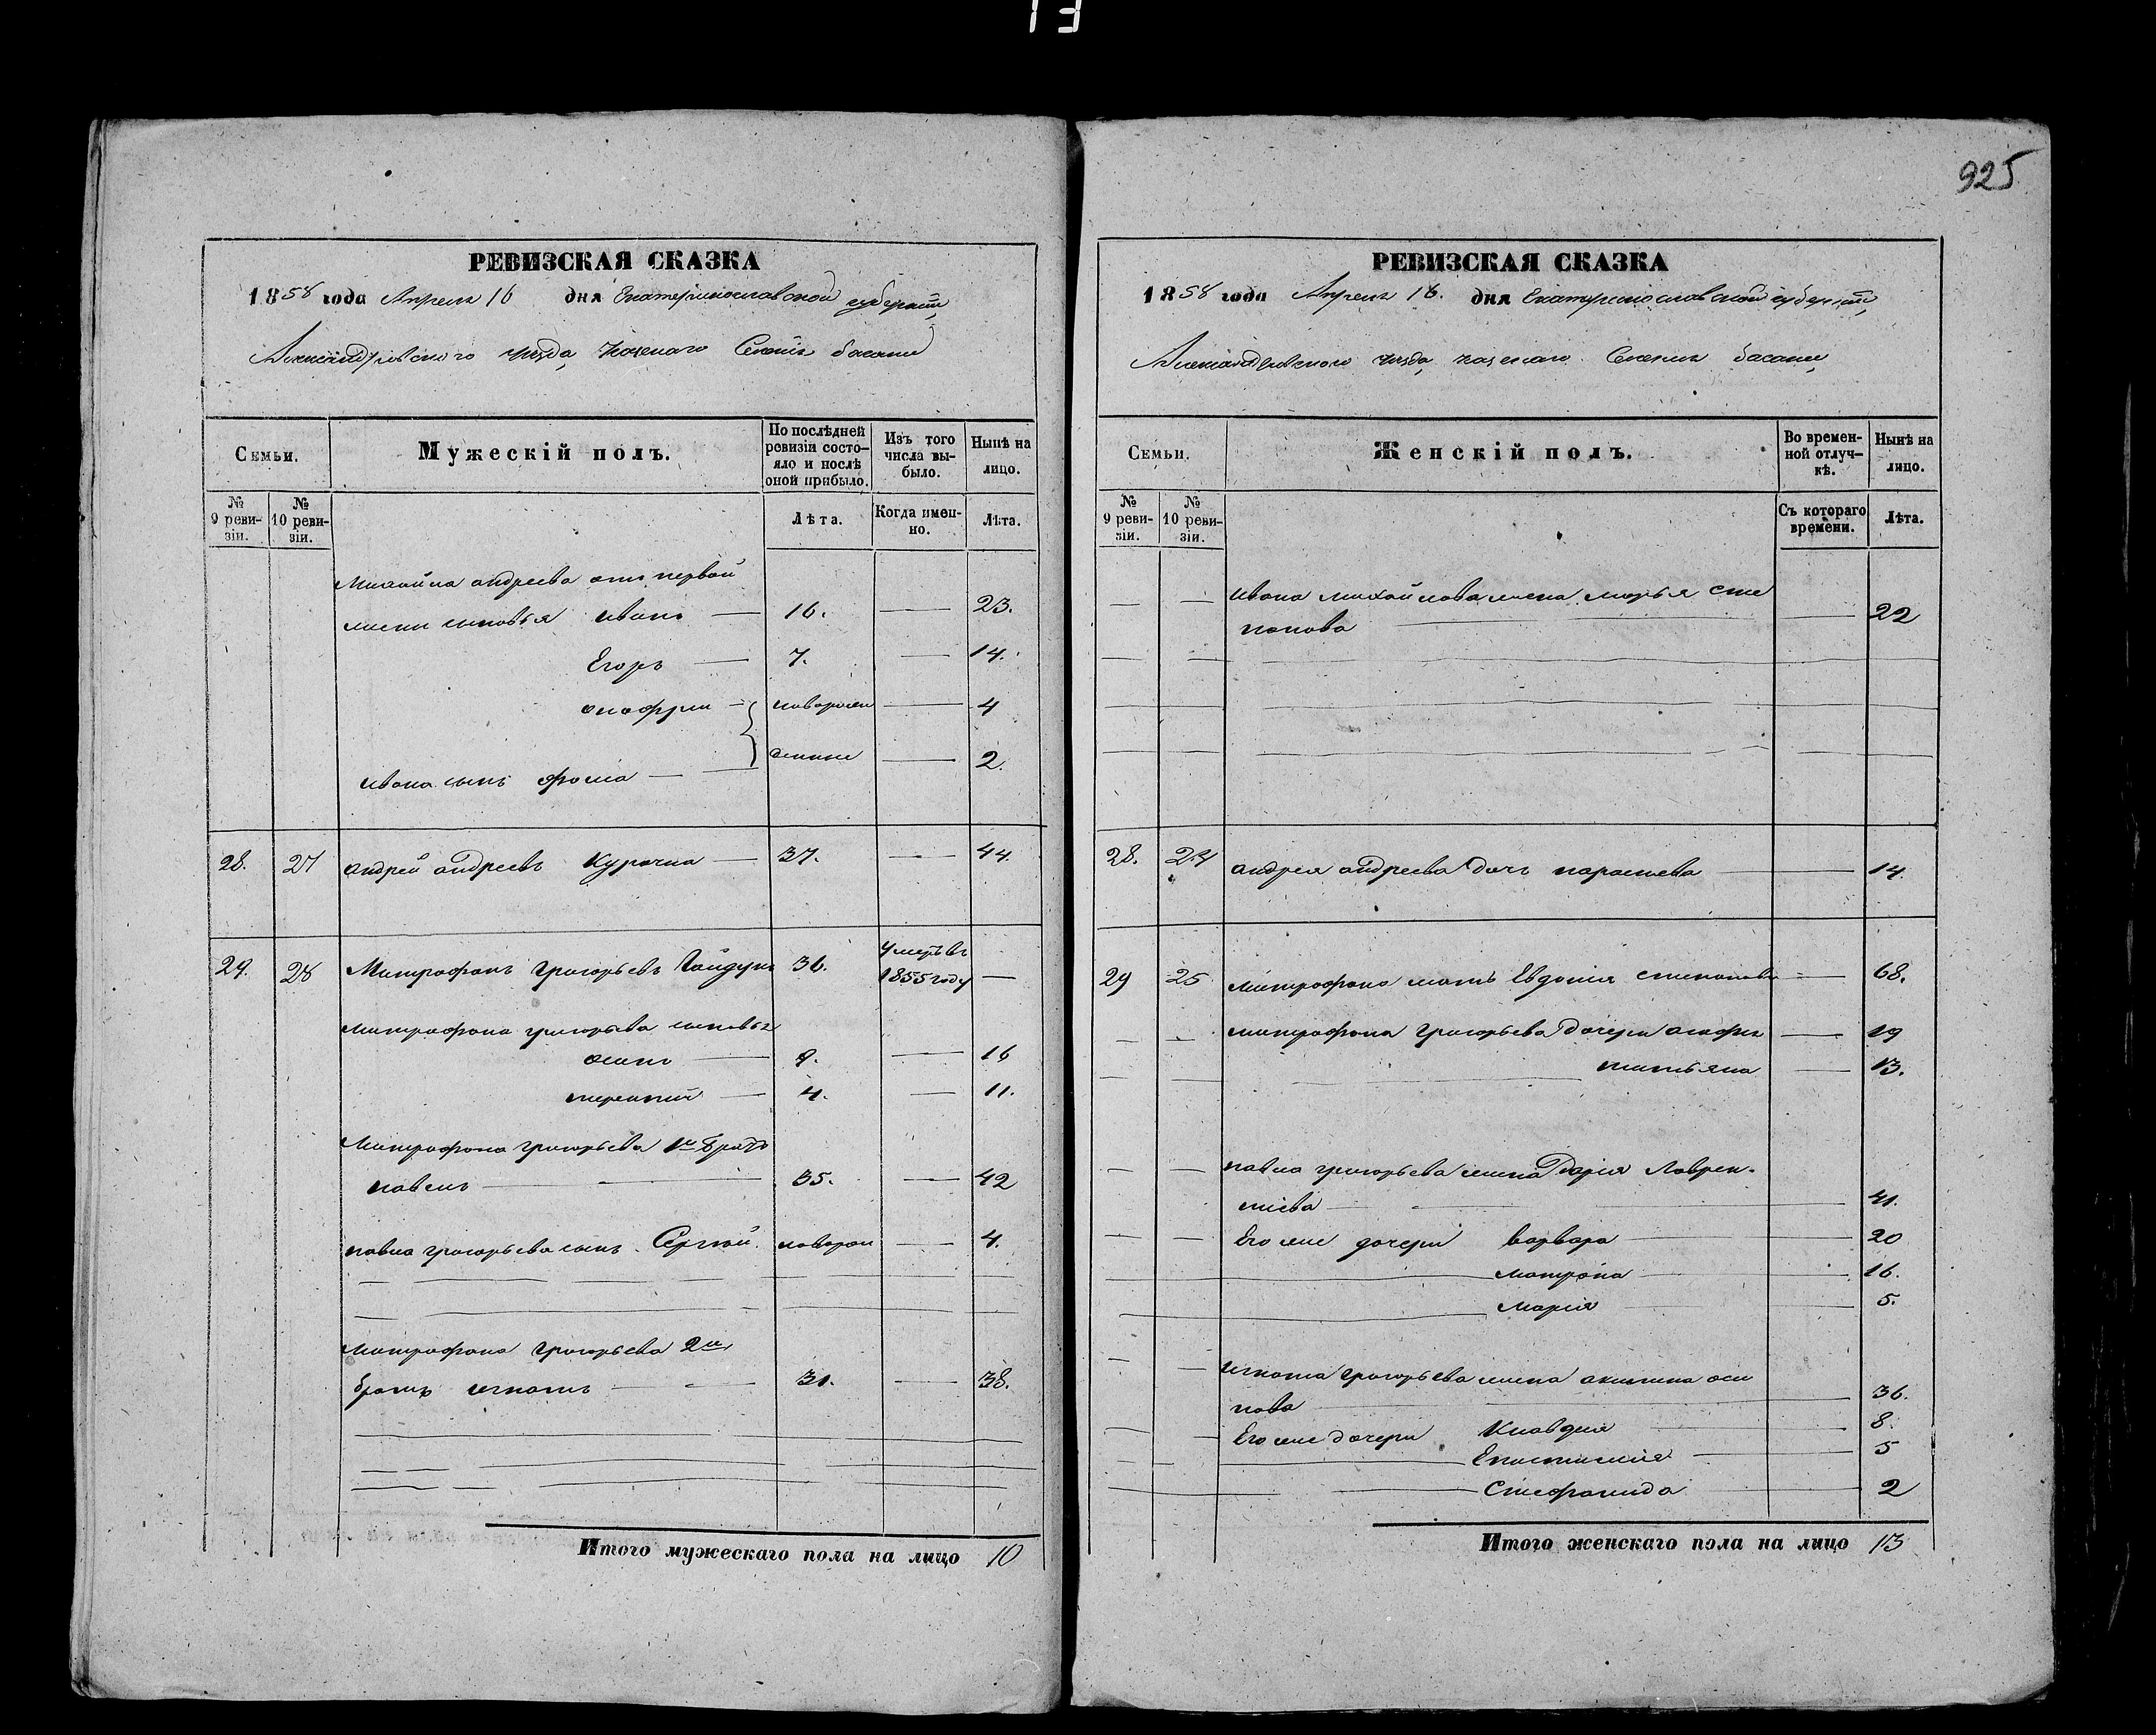 13
925
РЕВИЗСКАЯ СКАЗКА
1858 года Апреля 16 дня Екатеринославской губернии,
Александровского уезда, казенаго Селения басани
Семьи.
Мужескій полъ.
По послѣдней ревизіи состо-
яло и послѣ
оной прибыло.
Изъ того
числа вы-
было.
Нынѣ на
лицо.
№
9 реви-
зіи.
№
10 реви-
зіи.
Лѣта.
Когда имен-
но.
Лѣта.
Михайла андреева отъ первой
жены сыновья иванъ — 16. — 23.
Егоръ — 7. — 14.
онофрии — новорожден — 4
ивана сынъ фома — — 2.
28. 27 андрей андреевъ Курочка — 37. — 44.
29. 28 Митрофанъ григорьевъ Гайдукъ 36. Умеръ въ
1855 году —
митрофана григорьева сыновья
осипъ — 9. — 16
терентий — 4. — 11.
Митрофана григорьева 1й братъ
павелъ — — 35. — 42
павла григорьева сынъ Сергѣй новорож — 4.
митрофана григорьева 2й
братъ игнатъ — — 31. — 38.
Итого мужескаго пола на лицо 10
РЕВИЗСКАЯ СКАЗКА
1858 года Апреля 16. дня Екатеринославской губернии,
Александровского уезда, казенаго Селения басани,
Семьи.
Женскій полъ.
Во времен-
ной отлуч-
кѣ.
Нынѣ на
лицо.
№
9 реви-
зіи.
№
10 реви-
зіи.
Съ котораго
времени.
Лѣта.
— — ивана михайлова жена марья сте
панова — — — 22
28. 24 андрея андреева дочь параскева — — 14.
29 25 митрофана мать Евдокия степанова — 68.
— — митрофана григорьева дочери агафия — 19
татьяна — 13.
— — павла григорьева жена Дария Лаврен-
тиева — — — 41.
— — Его же дочери варвара — 20
матрона — 16.
мария — 5.
— — игната григорьева жена акилина оси
пова — 36.
— — Его же дочери Клавдия — 8.
— — Епистимия — 5
Стефанида — 2
Итого женскаго пола на лицо 13